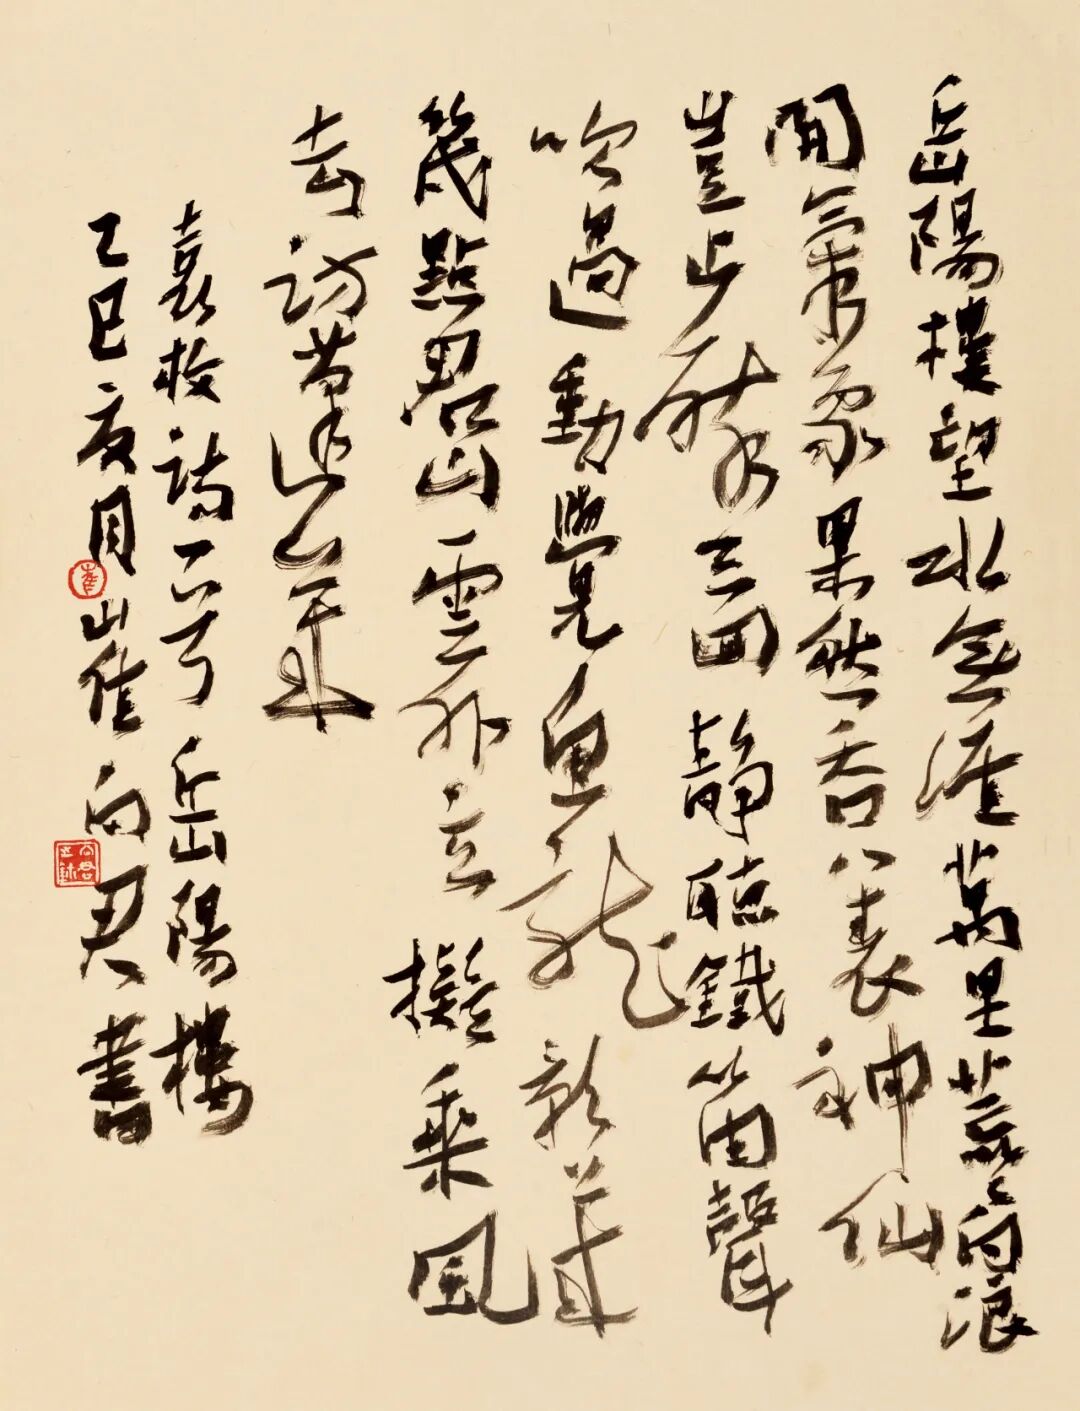 岳陽樓望水無涯萬里荒荒白浪
開氣象果然吞八表神仙
豈止醉三回靜聽鐵笛聲
吹過動覺魚龍影
幾點君山雲外立擬乘風
去訪蓬萊
袁枚詩一首岳陽樓
乙巳夏月山佳向君書